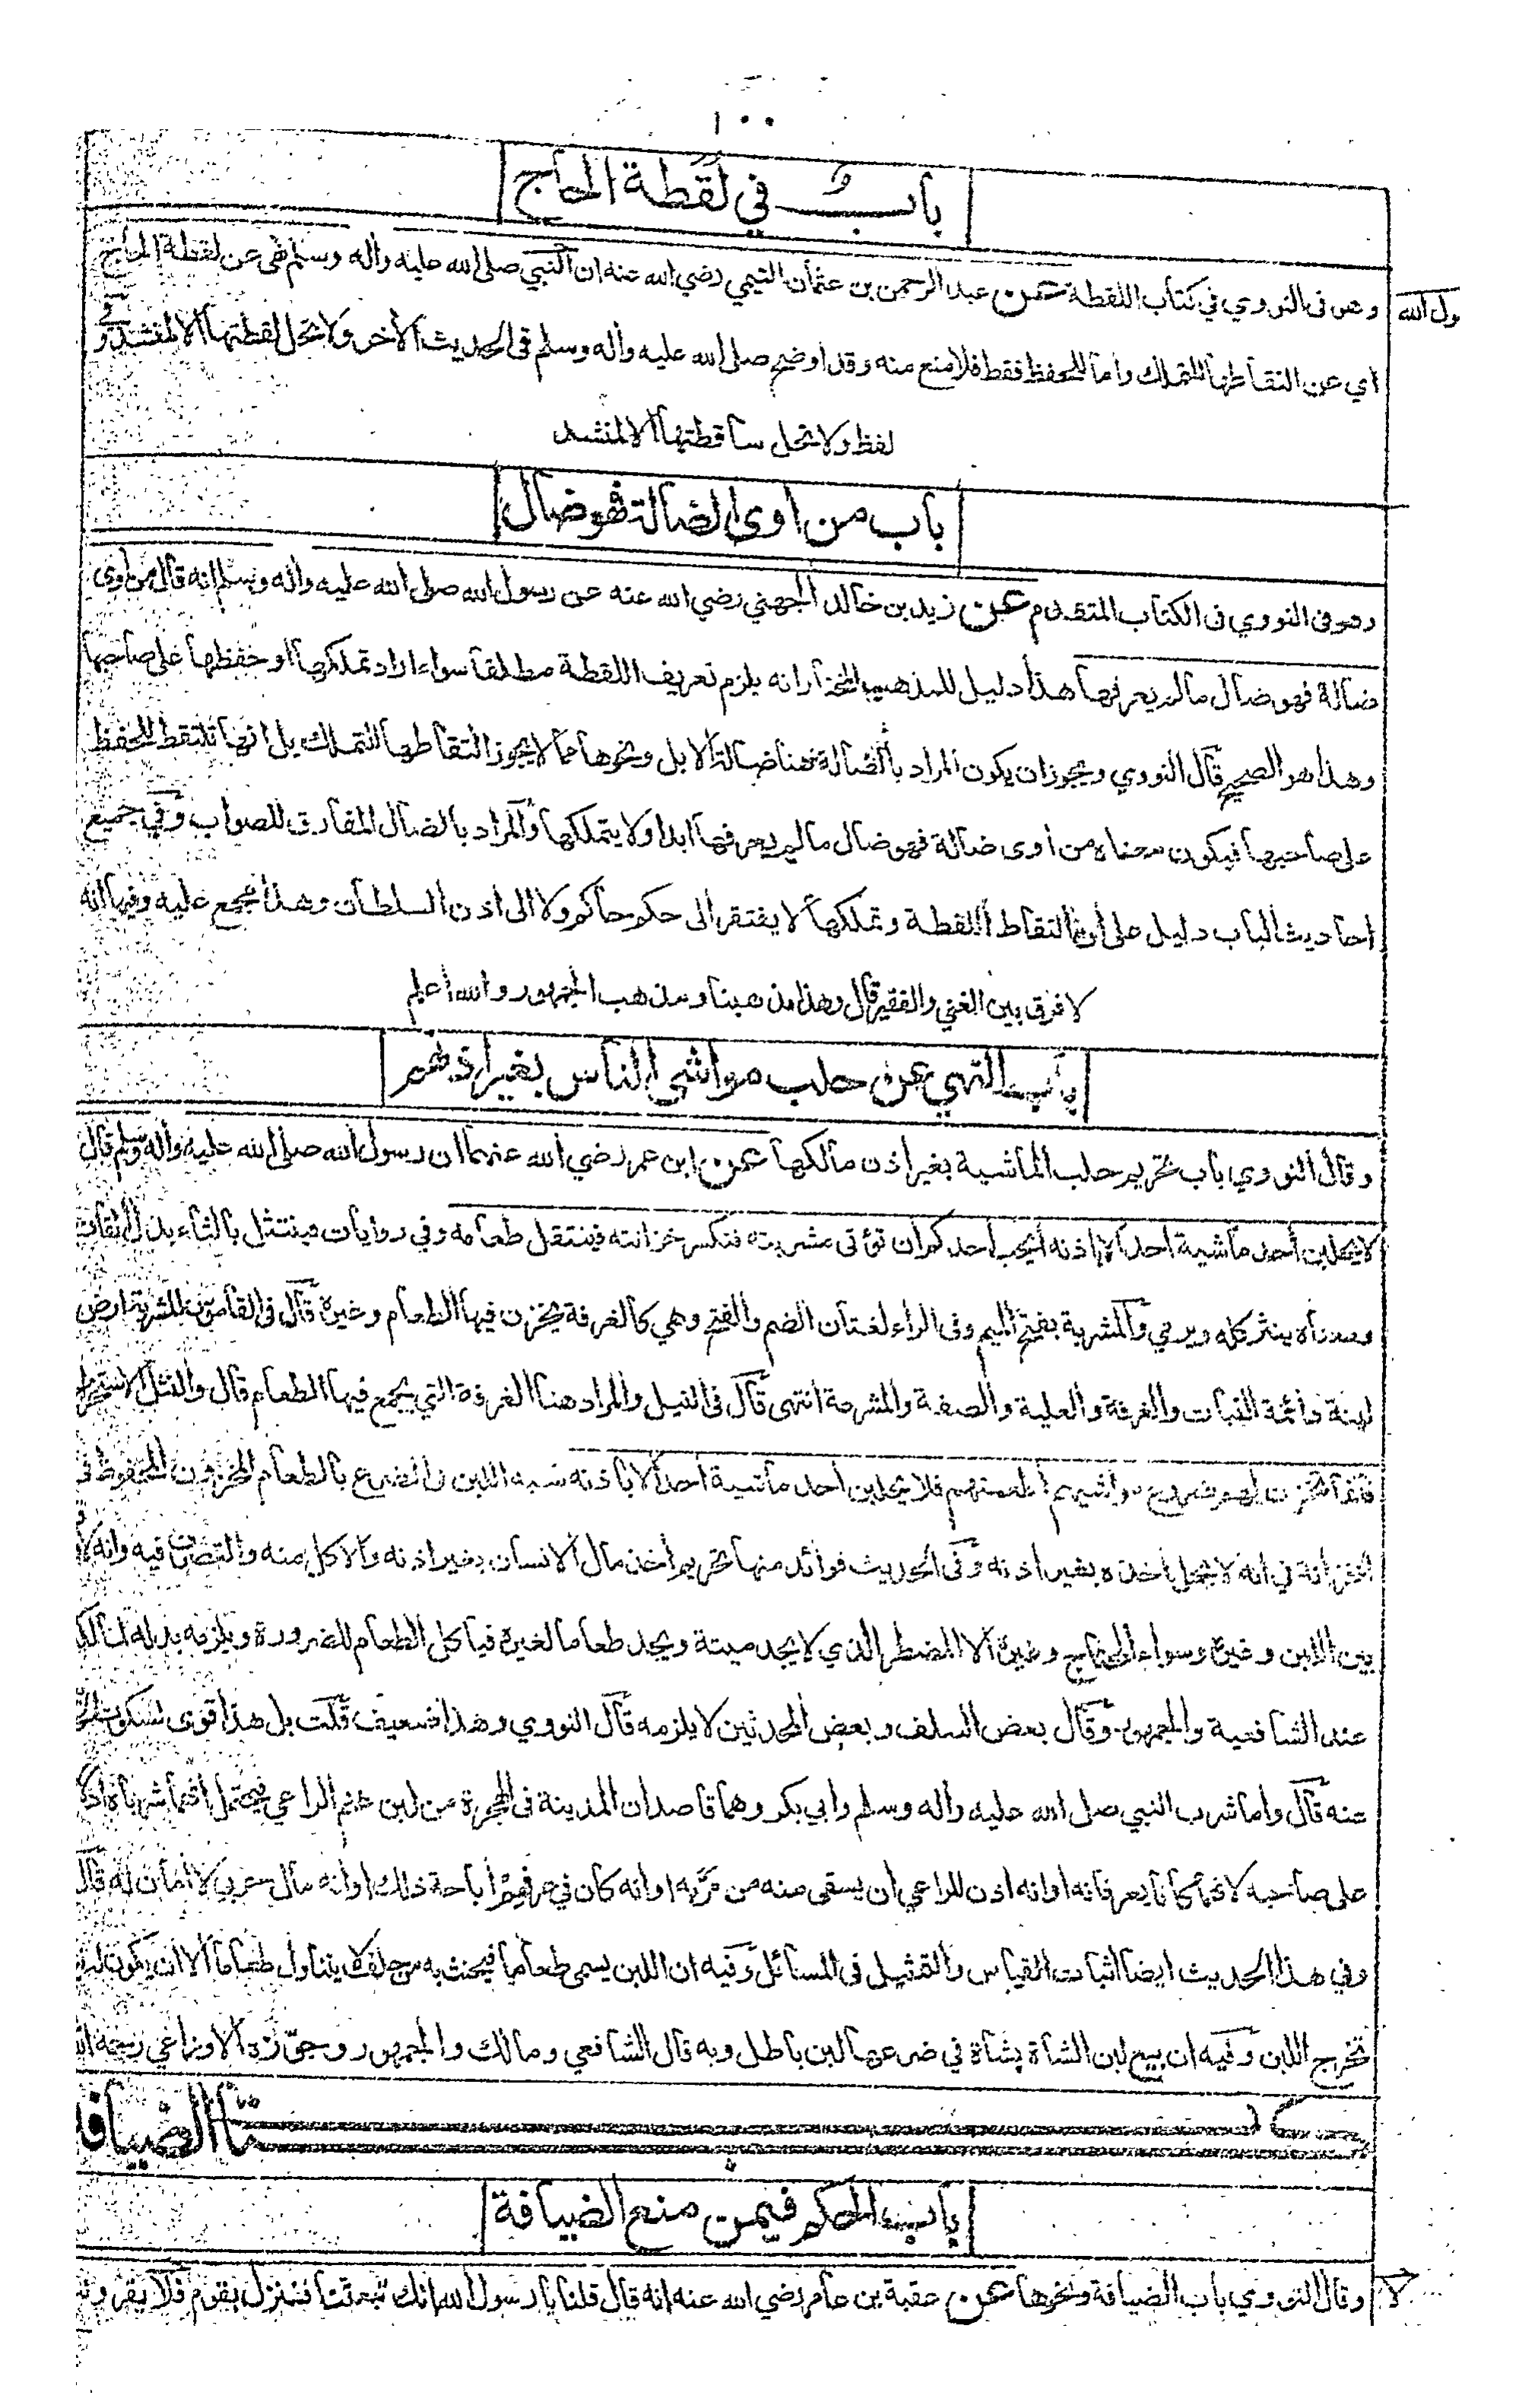 ١٠٠
باب في لقطة الحاج
وهو فى النووي في كتاب اللقطة عن عبد الرحمن بن عثمان التيمي رضي الله عنه ان النبي صلى الله عليه وأله وسلم نهى عن لقطة الحاج
ول الله
اي عن التقاطها للتملك وأما للحفظ فقط فلا منع منه وقد أوضح صلى الله عليه وأله وسلم فى الحديث الأخر ولا تحل لقطتها ألا لمنشد وفي
لفظ ولا تحل ساقطتها ألا لمنشد
باب من اوى الضالة فهو ضال
وهو فى النووي فى الكتاب المتقدم عن زيد بن خالد الجهني رضي الله عنه عن رسول الله صلى الله عليه وأله وسلم انه قال من أوى
ضالة فهو ضال مالم يعرفها هذا دليل للمذهب المختار انه يلزم تعريف اللقطة مطلقا سواء اراد تملكها او حفظها على صاحبها
وهذا هو الصحيح قال النووي ويجوز ان يكون المراد بالضالة هنا ضالة ألابل ونحوها مما لا يجوز التقاطها للتملك بل انها تلتقط للحفظ
على صاحبها فيكون معناه من أوى ضالة فهو ضال مالم يعرفها ابدا ولا يتملكها والمراد بالضال المفارق للصواب وفي جميع
احاديث الباب دليل على أن التقاط اللقطة وتملكها لا يفتقر الى حكم حاكم ولا الى اذن السلطان وهذا مجمع عليه وفيها انه
لا فرق بين الغني والفقير قال وهذا مذهبنا ومذهب الجمهور والله أعلم
باب النهي عن حلب مواشي الناس بغير اذنهم
وقال النووي باب تحريم حلب الماشية بغير اذن مالكها عن ابن عمر رضي الله عنهما ان رسول الله صلى الله عليه وأله وسلم قال
لا يحلبن أحد ماشية احد ألا باذنه أيحب أحدكم أن تؤتى مشربته فتكسر خزانته فينتقل طعامه وفي روايات فينتثل بالثاء بدل القاف
ومعناه ينثر كله ويرمى والمشربة بفتح الميم وفى الراء لغتان الضم والفتح وهي كالغرفة يخزن فيها الطعام وغيره قال فى القاموس المشربة ارض
لينة دائمة النبات والغرفة والعلية والصفة والمشرعة انتهى قال فى النيل والمراد هنا الغرفة التي يجمع فيها الطعام قال والنثل الاستخراج
فانما تخزن لهم ضروع مواشيهم أطعمتهم فلا يحلبن أحد ماشية احد ألا باذنه شبه اللبن فى الضرع بالطعام المخزون المحفوظ فى
الخزانة في انه لا يحل أخذه بغير اذنه وفى الحديث فوائد منها تحريم أخذ مال ألانسان بغير اذنه وألاكل منه والتصرف فيه وانه لا
بين اللبن وغيره وسواء المحتاج وغيره ألا المضطر الذي لا يجد ميتة ويجد طعاما لغيره فيأكل الطعام للضرورة ويلزمه بدله لمالكه
عند الشافعية والجمهور وقال بعض السلف وبعض المحدثين لا يلزمه قال النووي وهذا ضعيف قلت بل هذا قوي لسكوت
عنه قال واما شرب النبي صلى الله عليه وأله وسلم وابي بكر وهما قاصدان المدينة فى الهجرة من لبن غنم الراعي فيحتمل أنهما شرباه
على صاحبه لانهما كانا يعرفانه اوانه اذن للراعي أن يسقى منه من مر به اوانه كان في عرفهم أباحة ذلك اوانه مال حربي لا امان له قال
وفي هذا الحديث ايضا أثبات القياس والتمثيل فى المسائل وفيه ان اللبن يسمى طعاما فيحنث به من حلف لا يتناول طعاما ألا ان يكون له
تخرج اللبن وفيه ان بيع لبن الشاة بشاة في ضرعها لبن باطل وبه قال الشافعي ومالك والجمهور وجوزه الاوزاعي رحمه الله
كتاب الضيافة
باب الحكم فيمن منع الضيافة
وقال النووي باب الضيافة ونحوها عن عقبة بن عامر رضي الله عنه انه قال قلنا يا رسول الله انك تبعثنا فننزل بقوم فلا يقرون
لا